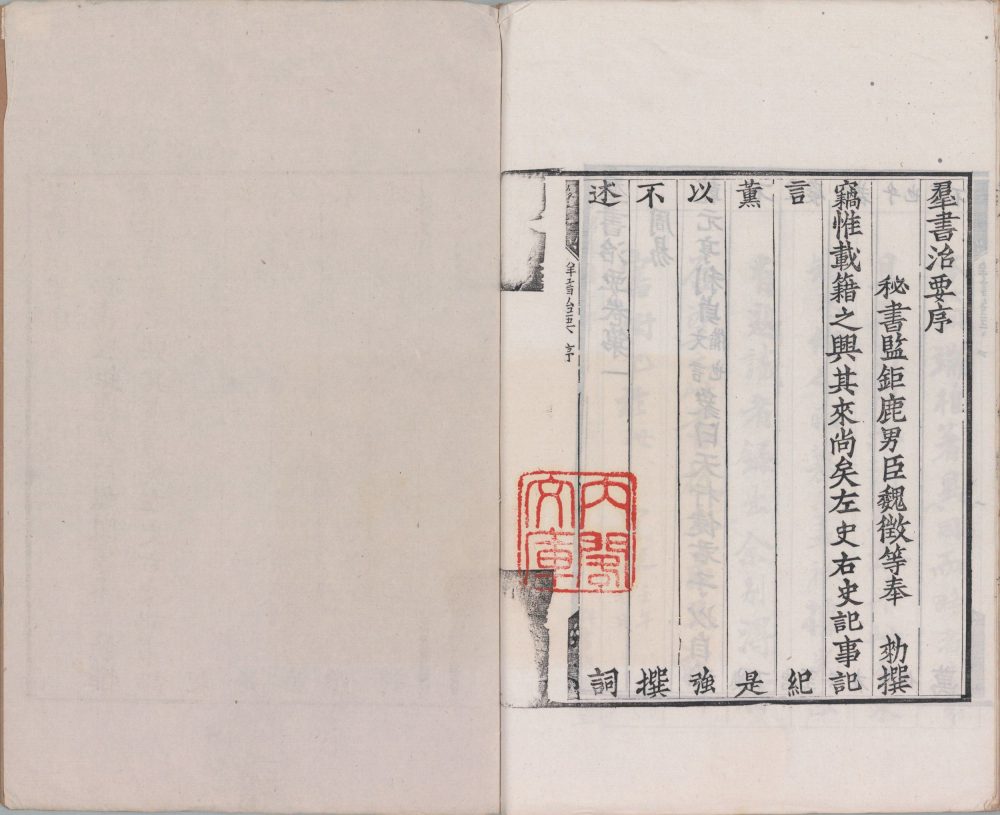 羣書治要序
秘書監鉅鹿男臣魏徵等奉　勑撰
竊惟載籍之興其來尚矣左史右史記事記
言　紀
薫　是
以　強
不　撰
述　詞
群書治要 序
內閣文庫